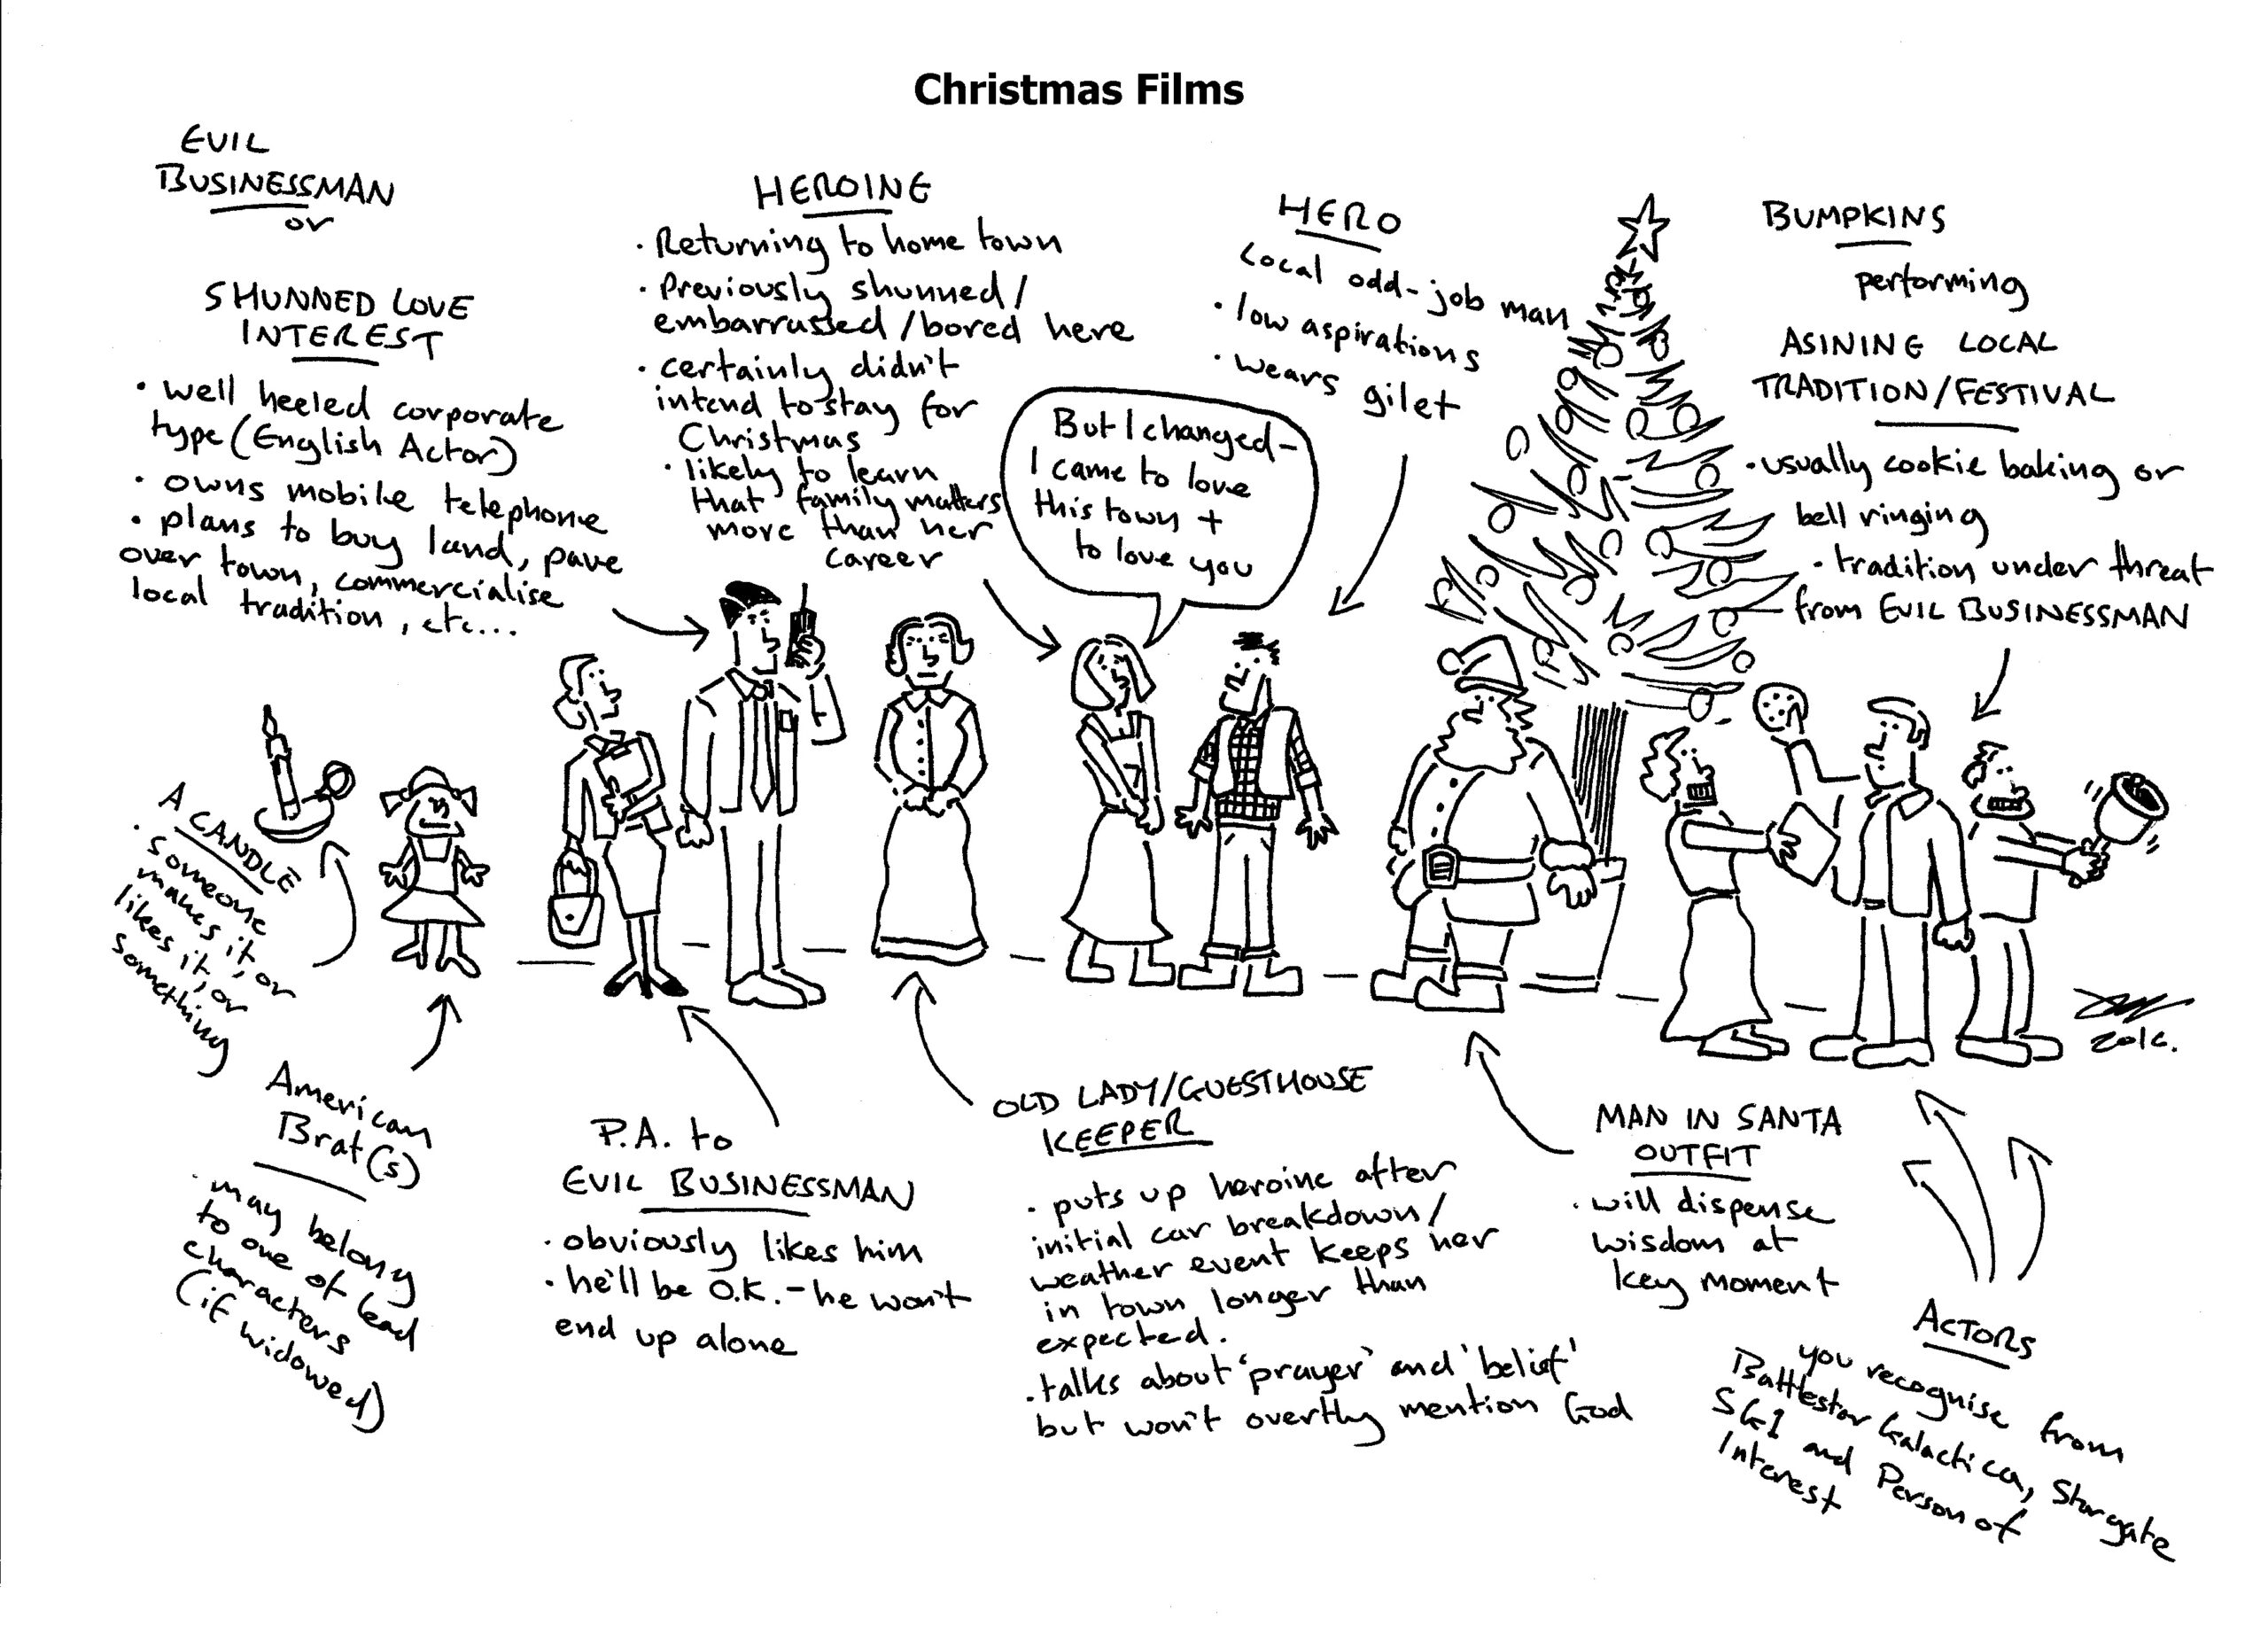 Christmas Films
EVIL
BUSINESSMAN
or
SHUNNED LOVE
INTEREST
• well heeled corporate
type (English Actor)
• owns mobile telephone
• plans to buy land, pave
over town, commercialise
local tradition, etc...
HEROINE
• Returning to home town
• Previously shunned/
embarrassed/bored here
• certainly didn't
intend to stay for
Christmas
• likely to learn
that family matters
more than her
career
But I changed-
I came to love
this town +
to love you
HERO
Local odd-job man
• low aspirations
• wears gilet
BUMPKINS
performing
ASINING LOCAL
TRADITION/FESTIVAL
• usually cookie baking or
bell ringing
• tradition under threat
from EVIL BUSINESSMAN
A CANDLE
• someone
makes it, or
likes it, or
something
American
Brat(s)
• may belong
to one of lead
characters
(if widowed)
P.A. to
EVIL BUSINESSMAN
• obviously likes him
• he'll be O.K. - he won't
end up alone
OLD LADY/GUESTHOUSE
KEEPER
• puts up heroine after
initial car breakdown/
weather event keeps her
in town longer than
expected.
• talks about 'prayer' and 'belief'
but won't overtly mention God
MAN IN SANTA
OUTFIT
• will dispense
wisdom at
key moment
ACTORS
you recognise from
Battlestar Galactica, Stargate
SG1 and Person of
Interest